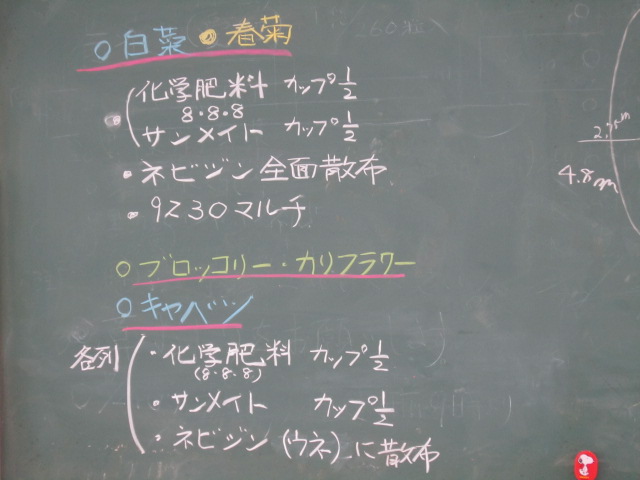 ○白菜●春菊
化学肥料 カップ1/2
8・8・8
サンメイト カップ1/2
・ネビジン全面散布
・9230マルチ
○ブロッコリー・カリフラワー
○キャベツ
各列
・化学肥料 カップ1/2
(8・8・8)
・サンメイト カップ1/2
・ネビジン(ウネ)に散布
4.8m